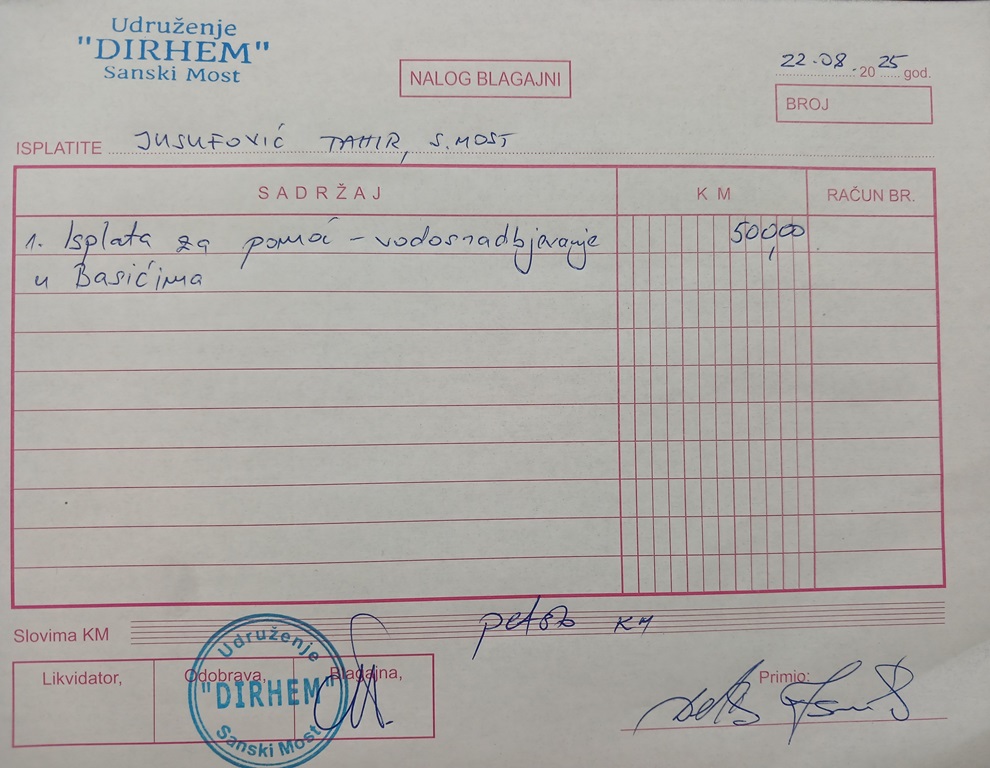 Udruženje
"DIRHEM"
Sanski Most
NALOG BLAGAJNI
22.08.2025 god.
BROJ
ISPLATITE JUSUFOVIĆ TAHIR, S.MOST
SADRŽAJ KM RAČUN BR.
1. Isplata za pomoć - vodosnadbjevanje 500,00
u Basićima
Slovima KM petsto KM
Likvidator, Odobrava, Blagajna,
Primio:
Udruženje
"DIRHEM"
Sanski Most